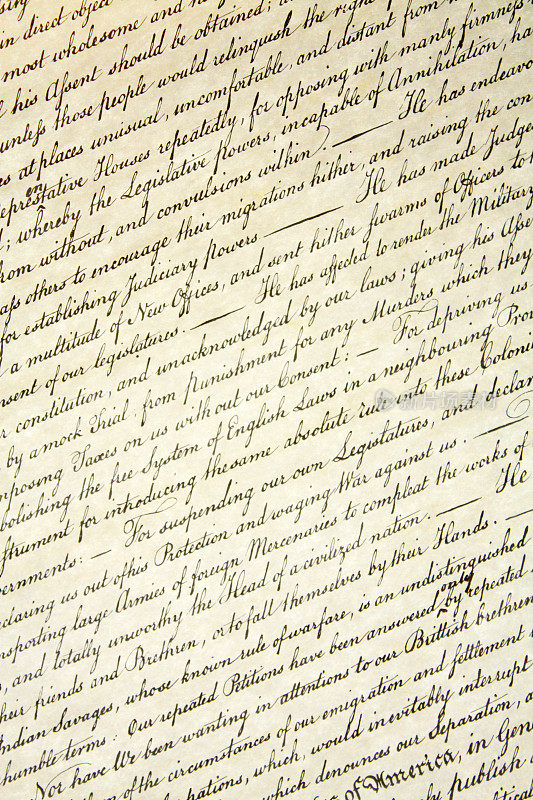 in direct object
most wholesome and
his Assent should be obtained;
unless those people would relinquish the right
es at places unusual, uncomfortable, and distant from
epresentative Houses repeatedly, for opposing with manly firmness
; whereby the Legislative powers, incapable of Annihilation, ha
rom without, and convulsions within. — He has endeavo
ass others to encourage their migrations hither, and raising the con
for establishing Judiciary powers — He has made Judge
a multitude of New Offices, and sent hither swarms of Officers to
nsent of our legislatures. — He has affected to render the Military
r constitution, and unacknowledged by our laws; giving his Asse
by a mock Trial from punishment for any Murders which they
mposing Taxes on us without our Consent: — For depriving us
bolishing the free System of English Laws in a neighbouring Prov
strument for introducing the same absolute rule into these Coloni
vernments: — For suspending our own Legislatures, and declar
eclaring us out of his Protection and waging War against us. —
nsporting large Armies of foreign Mercenaries to compleat the works of
, and totally unworthy the Head of a civilized nation. — He
heir friends and Brethren, or to fall themselves by their Hands. —
Indian Savages, whose known rule of warfare, is an undistinguished
humble terms: Our repeated Petitions have been answered only by repeated
Nor have We been wanting in attentions to our Brittish brethren
m of the circumstances of our emigration and settlement
pations, which, would inevitably interrupt
which denounces our Separation, a
of America, in Gen
publish